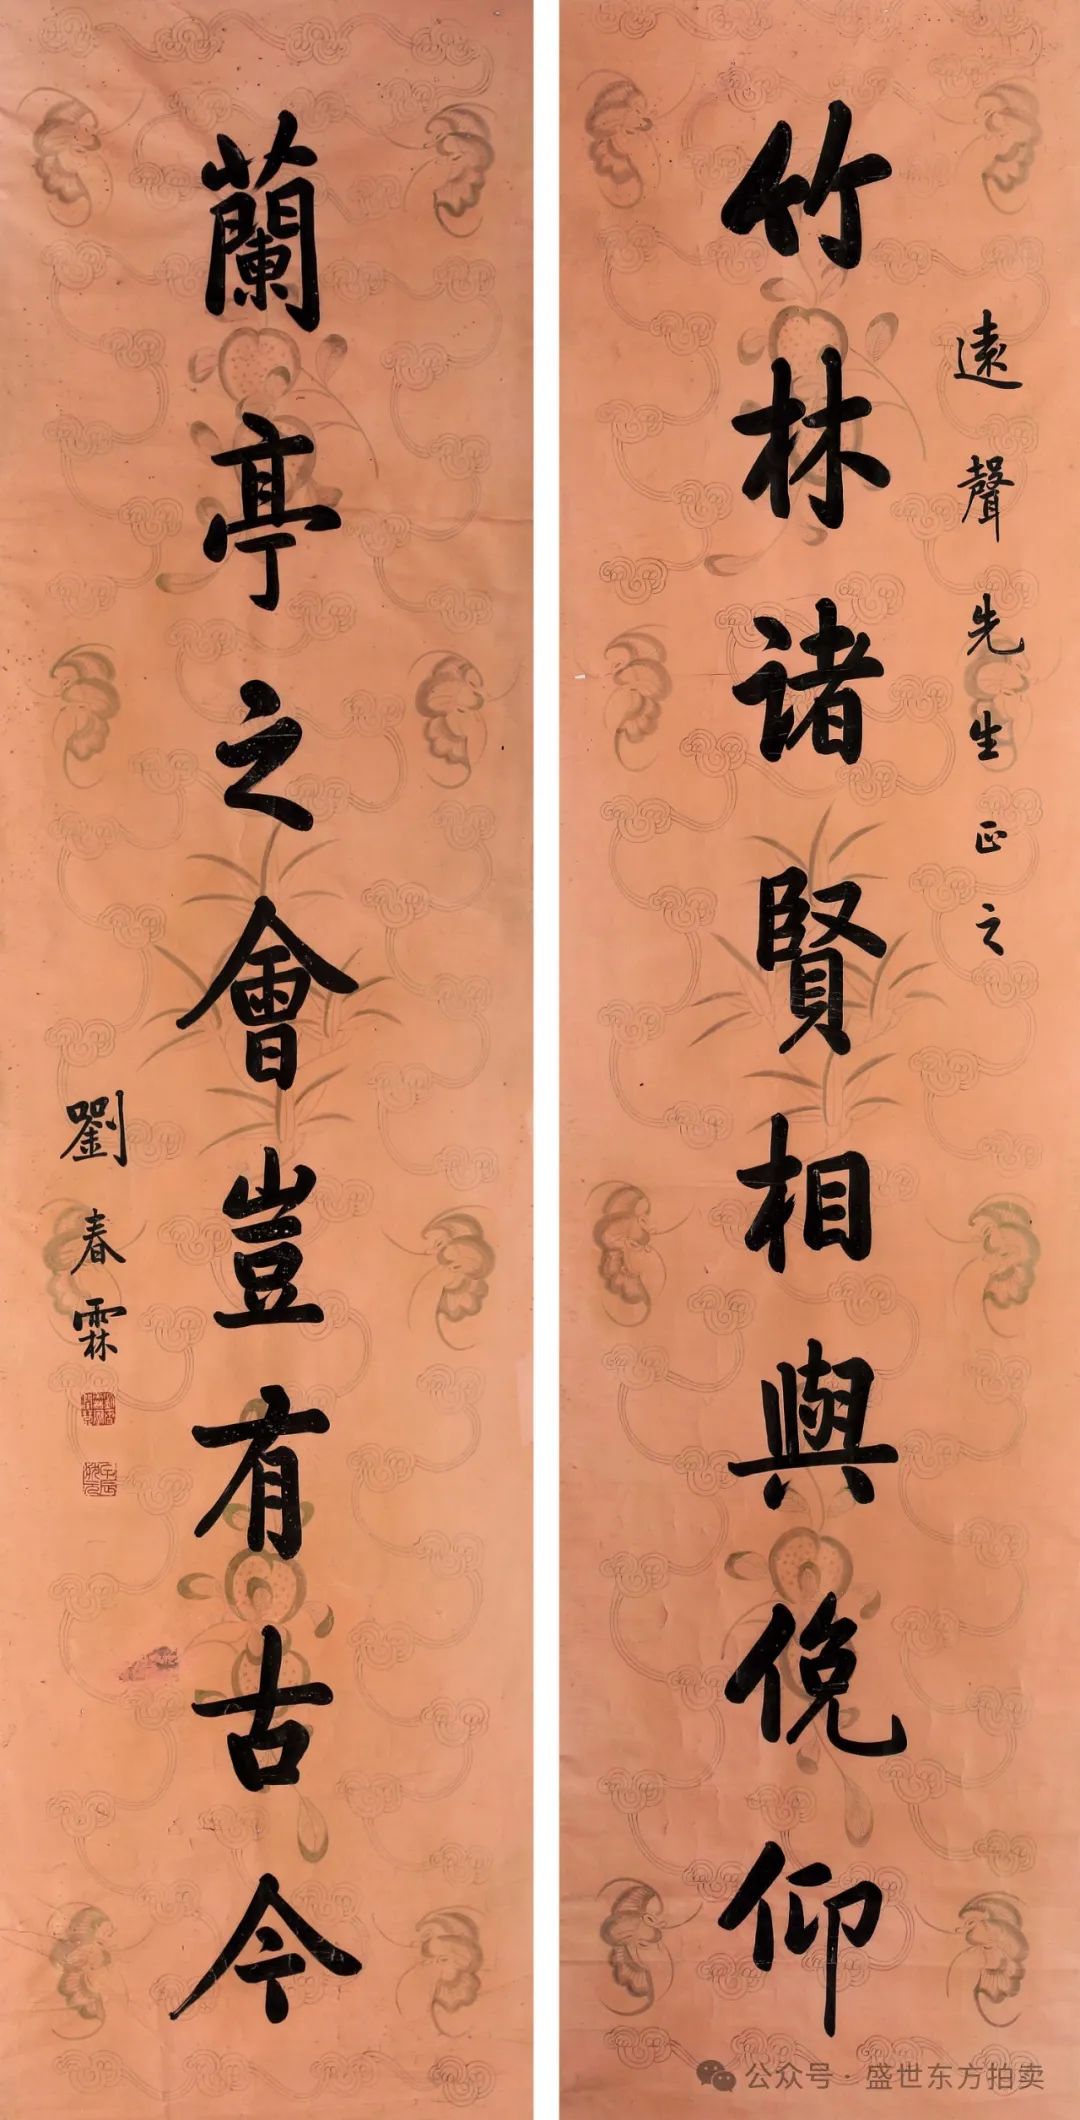 遠聲先生正之
竹林诸賢相與俛仰
蘭亭之會豈有古今
劉春霖
公众号·盛世东方拍卖